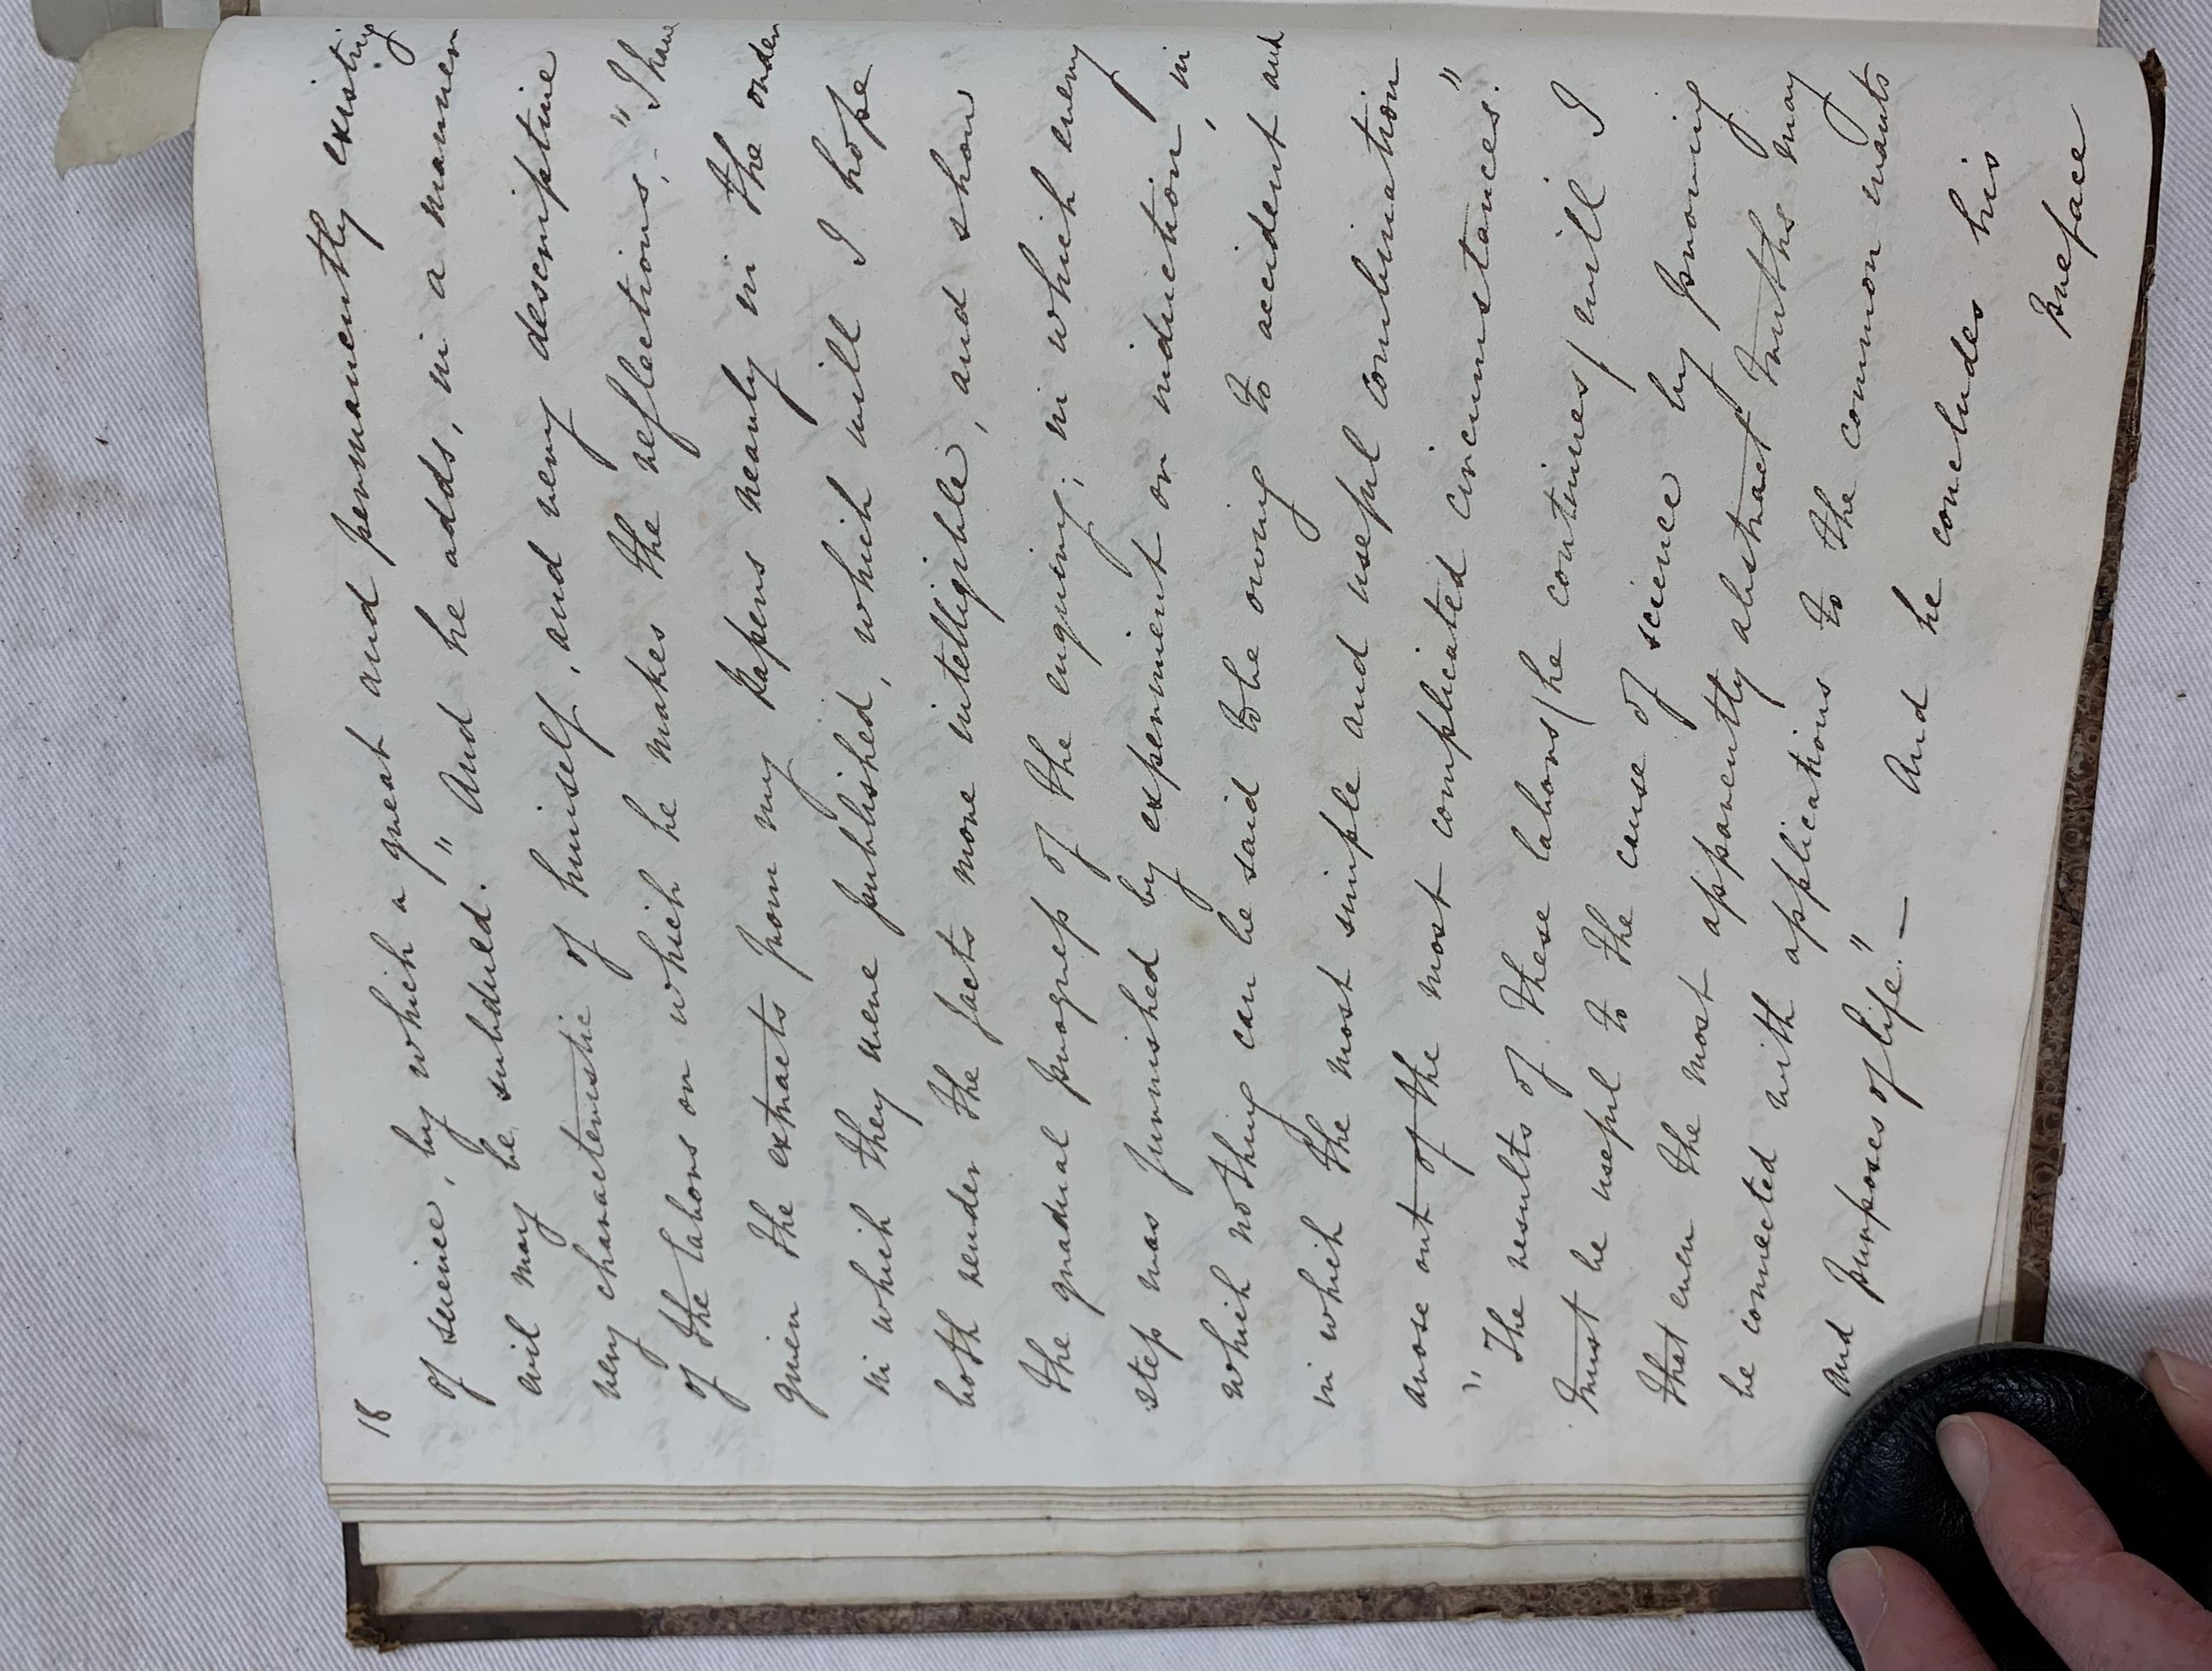 18
of science, by which a great and permanently existing
evil may be subdued." And he adds, in a manner
very characteristic of himself, and very descriptive
of the labors on which he makes the reflections,- "I have
given the extracts from my papers nearly in the order
in which they were published, which will I hope
both render the facts more intelligible, and show
the gradual progress of the enquiry; in which every
step was furnished by experiment or induction, in
which nothing can be said to be owing to accident and
in which the most simple and useful combination
arose out of the most complicated circumstances."
"The results of these labors /he continues/ will I
trust be useful to the cause of science by proving
that even the most apparently abstract truths may
be connected with applications to the common wants
and purposes of life." — And he concludes his
preface